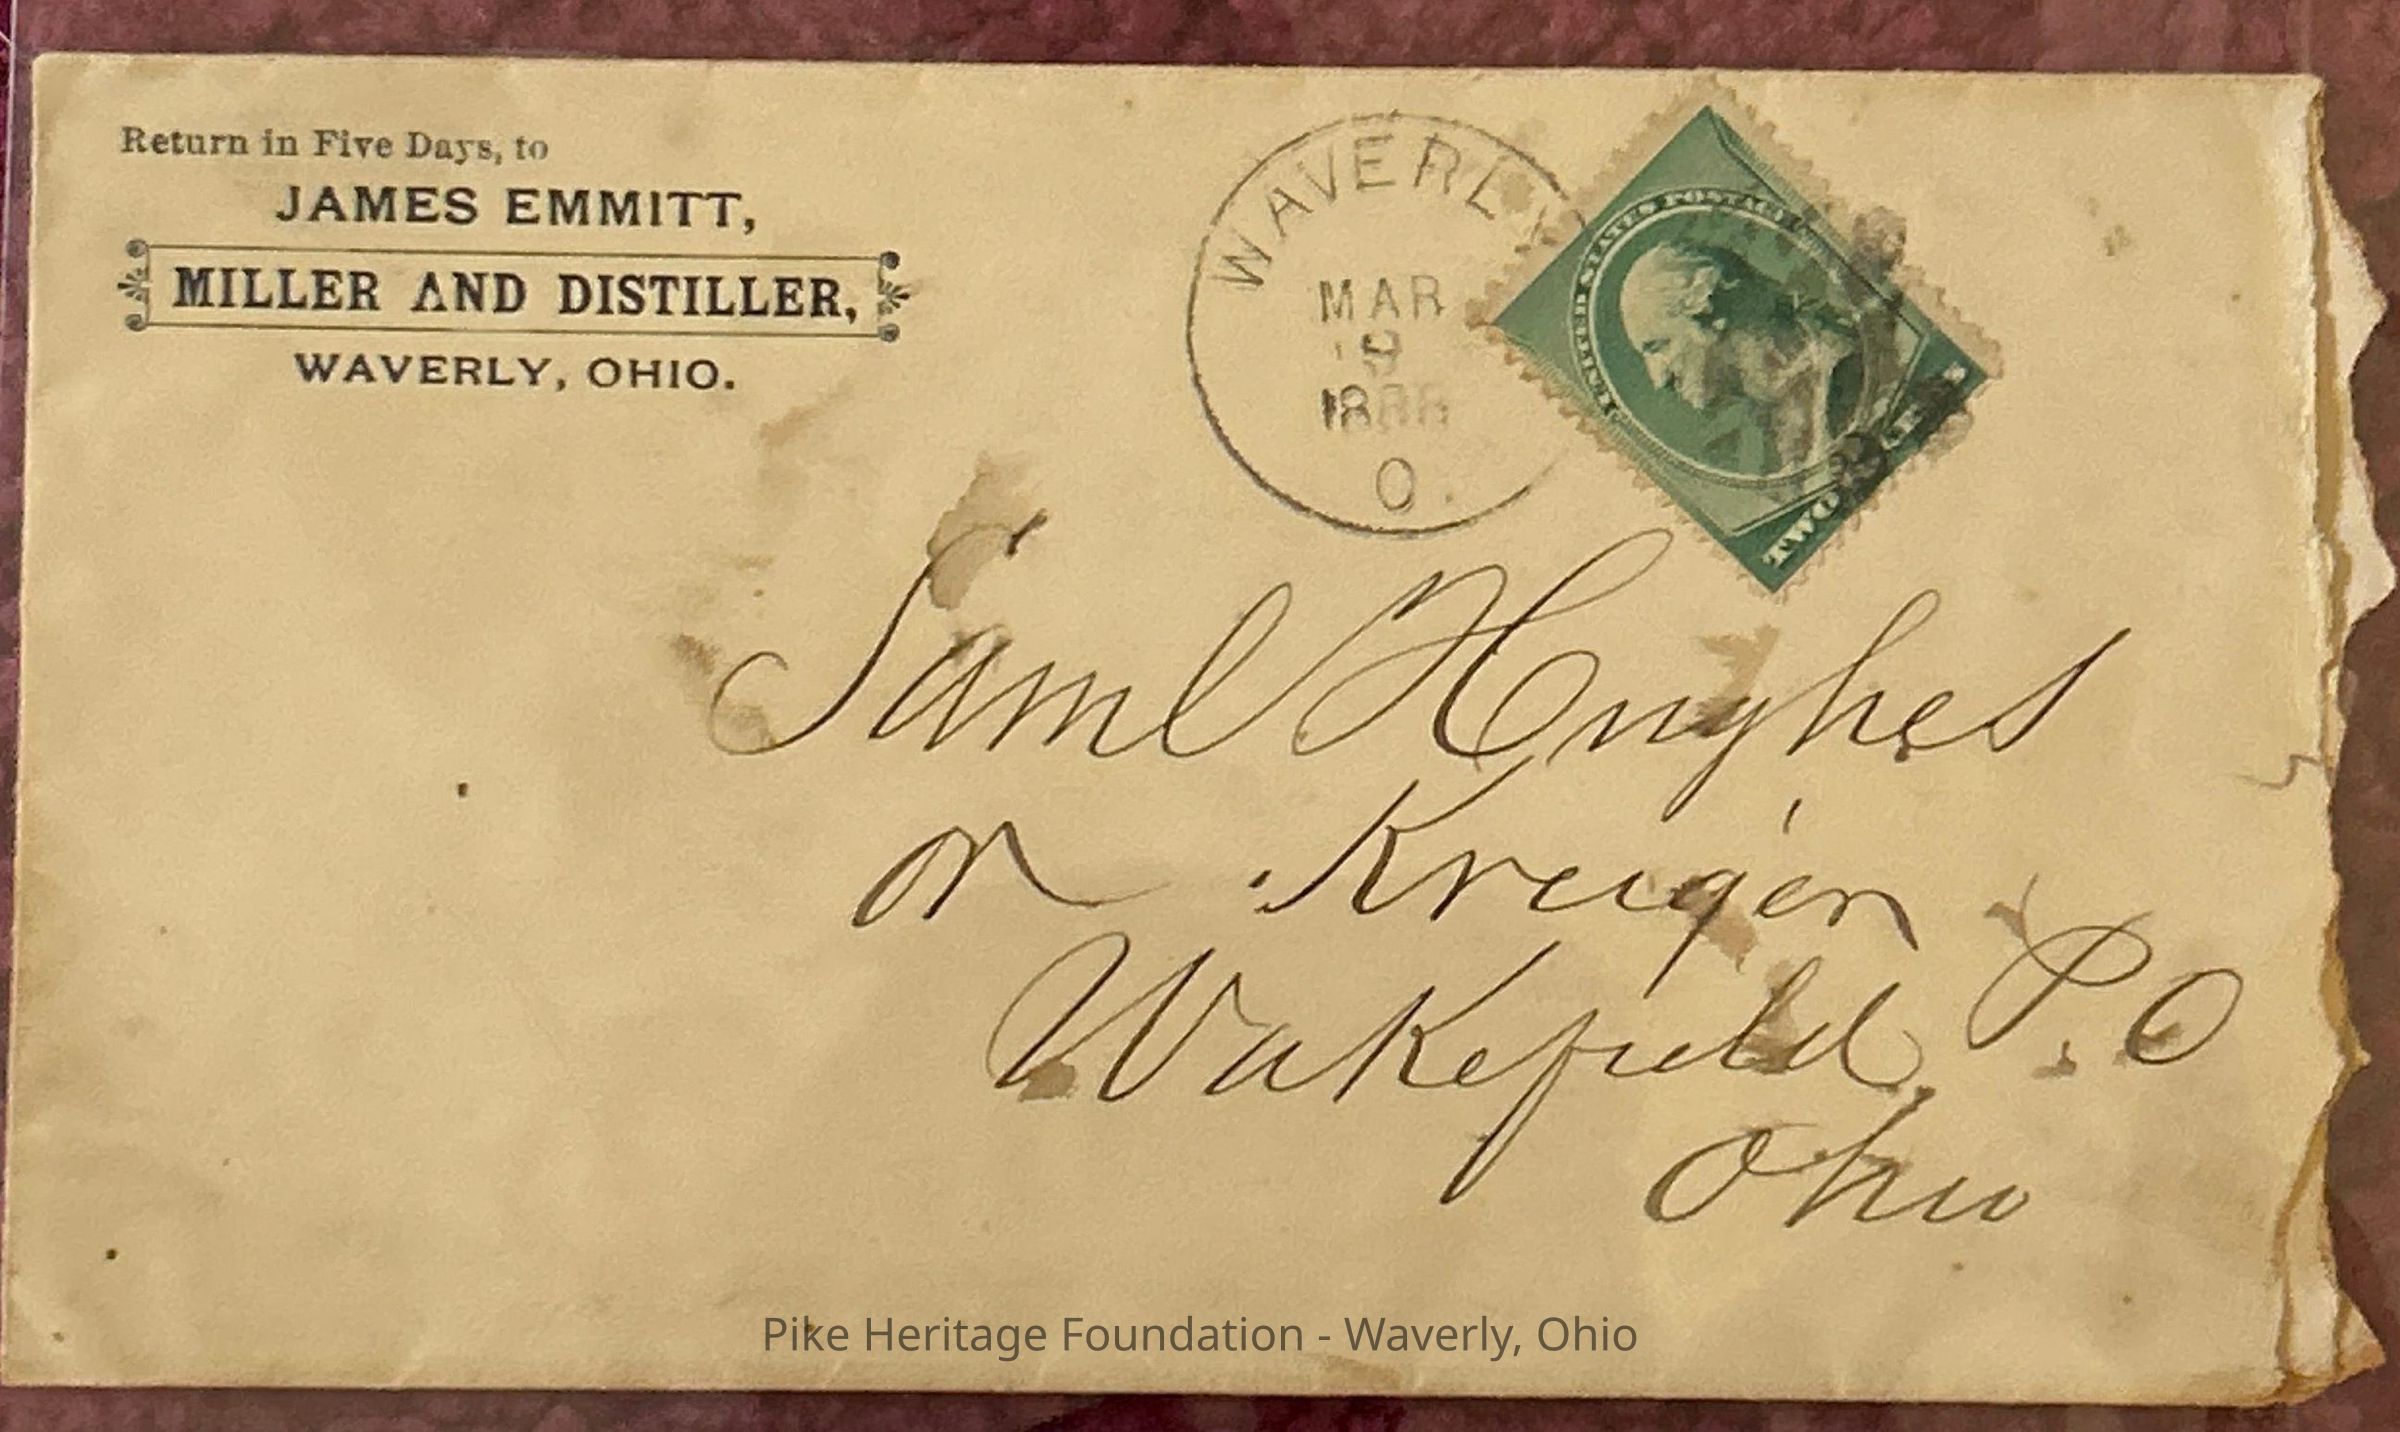 Return in Five Days, to
JAMES EMMITT,
MILLER AND DISTILLER,
WAVERLY, OHIO.
WAVERLY
MAR
9
1888
O.
UNITED STATES POSTAGE
TWO
Saml Hughes
or Kreiger
Wakefield P.O
Ohio
Pike Heritage Foundation - Waverly, Ohio